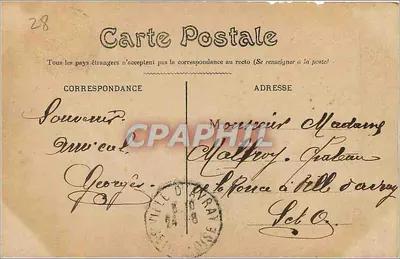 28
Carte Postale
Tous les pays étrangers n'acceptent pas la correspondance au recto (Se renseigner à la poste)
CORRESPONDANCE
ADRESSE
Souvenir
amical
Georges
Monsieur Madame
Malfroy
à Ville d'avray
S et O.
CPAPHIL
VILLE D'AVRAY
SEINE
OISE